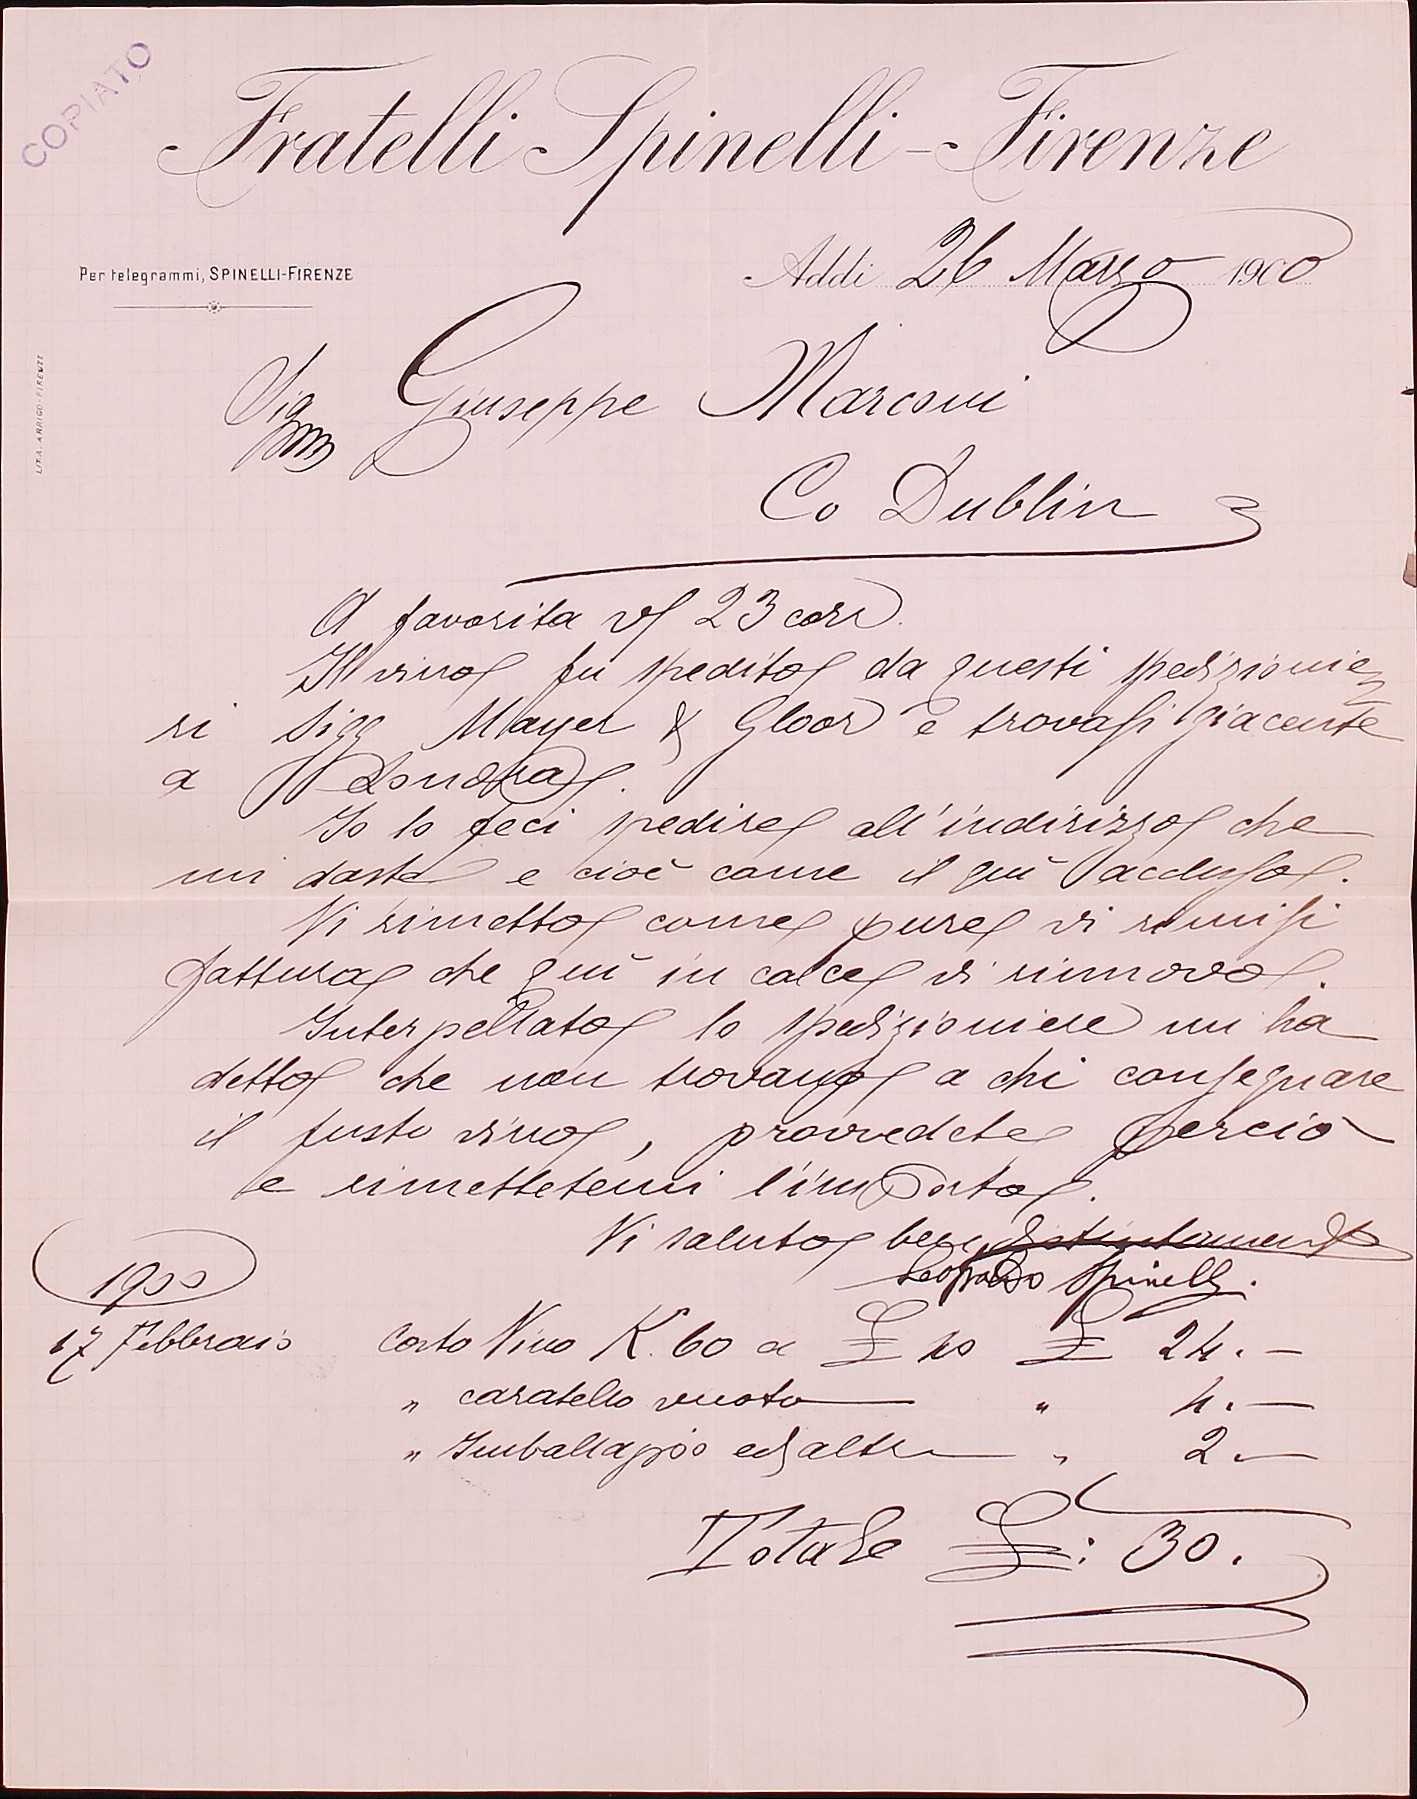 COPIATO
Fratelli Spinelli - Firenze
Per telegrammi, SPINELLI-FIRENZE
Addì 26 Marzo 1900
LIT. A. ARRIGO-FIRENZE
Sig Giuseppe Marconi
Co Dublin
A favorita 23 corr.
Il vino fu spedito da questi spedizionie=
ri Sigg Mayer & Gloor e trovasi giacente
a Londra.
Io lo feci spedire all'indirizzo che
mi daste e cioè come il quì accluso.
Vi rimetto come pure vi rimisi
fattura che quì in calce vi rinnovo.
Interpellato lo spedizioniere mi ha
detto che non trovano a chi consegnare
il fusto vino, provvedete perciò
e rimettetemi l'importo.
Vi saluto ben distintamente
Leopoldo Spinelli.
1900
17 Febbraio Costo Vino K. 60 a £ 40 £ 24.-
" caratello vuoto " 4.-
" Imballaggio ed altro " 2.-
Totale £: 30.